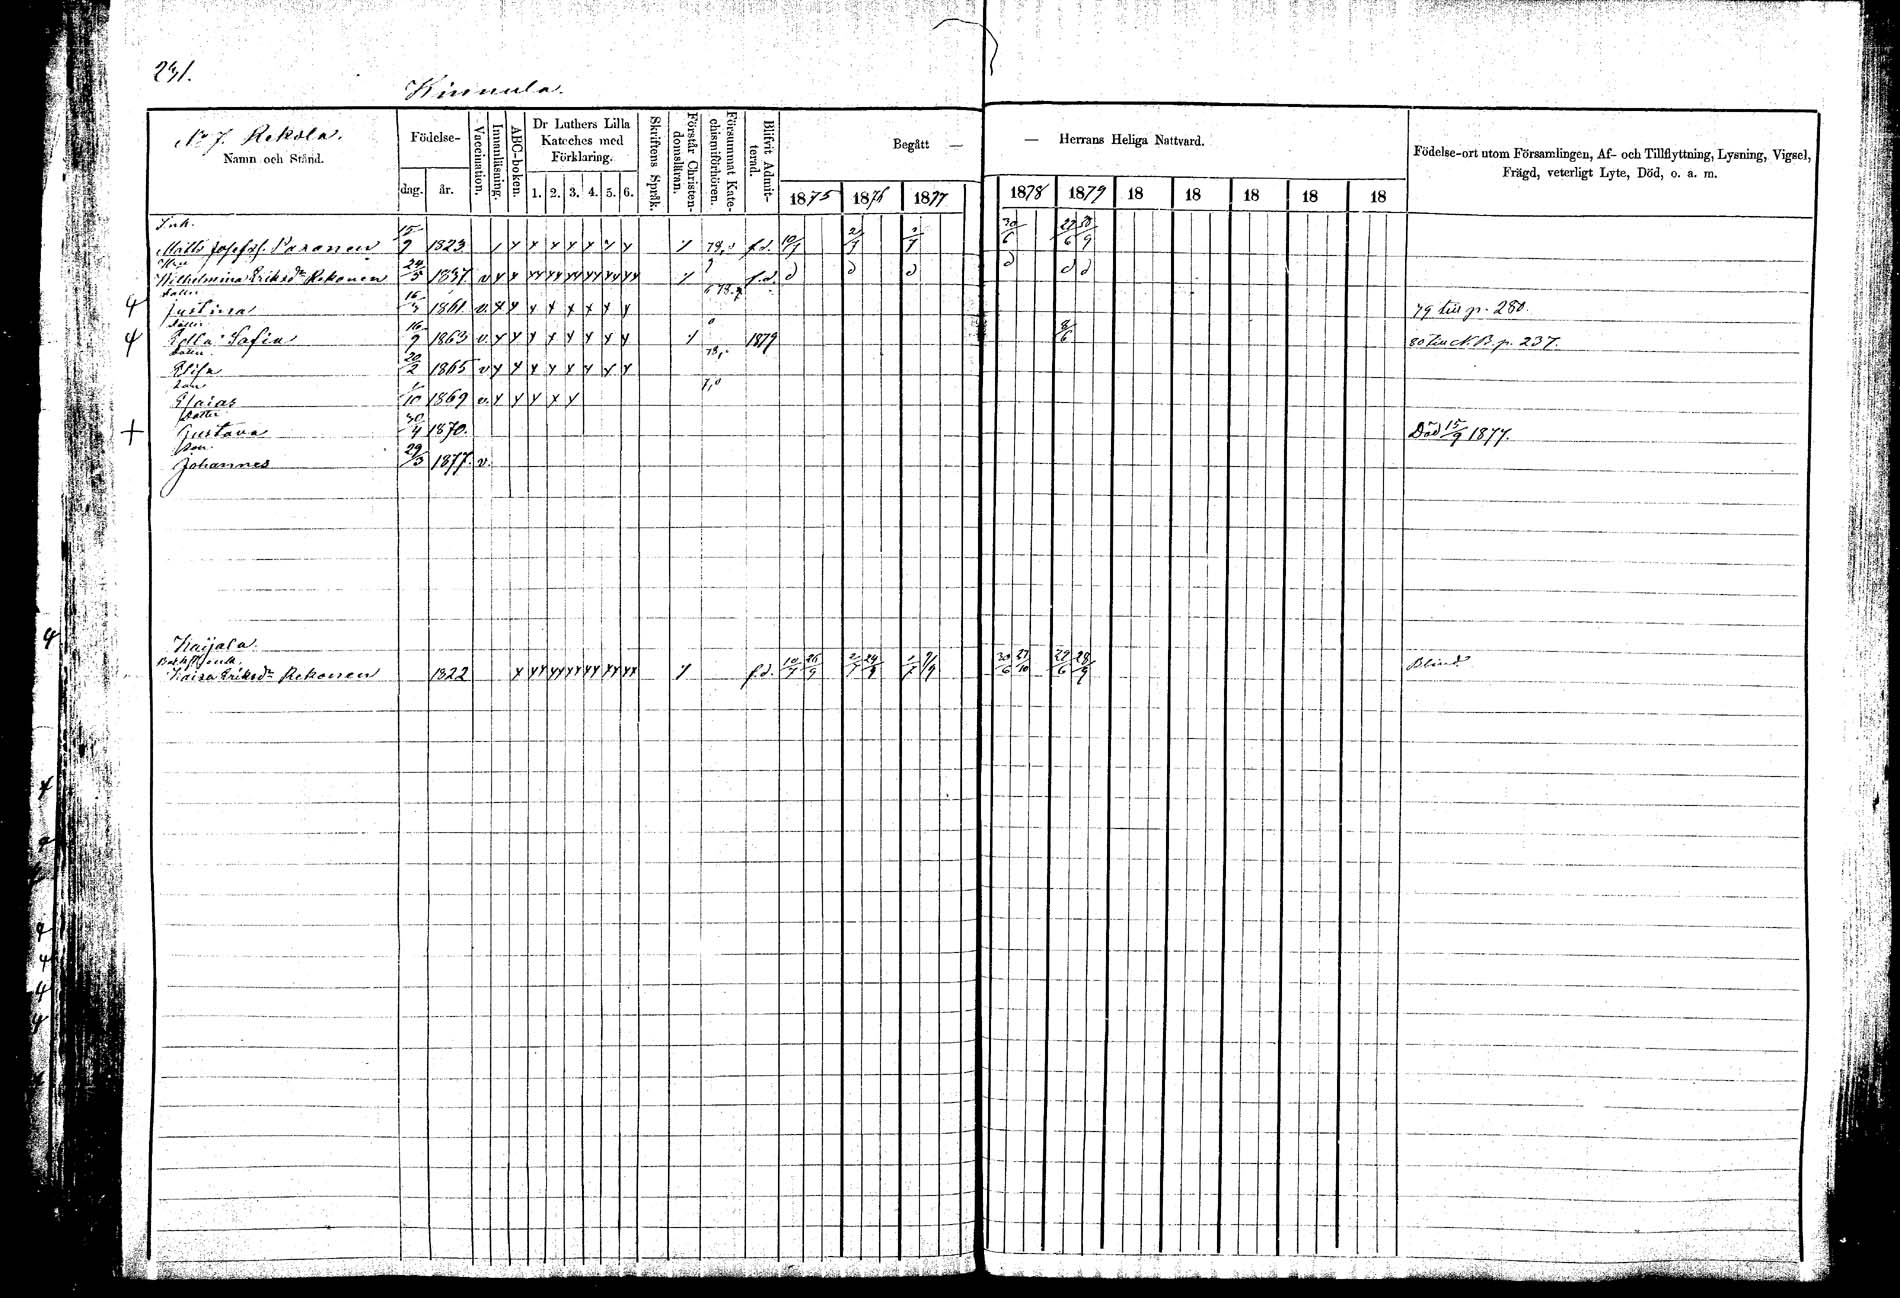 231.
Kinnula.
No 7. Rekola.
Namn och Stånd.
Födelse-
dag.
år.
Vaccination.
Innanläsning.
ABC-boken.
Dr Luthers Lilla
Kateches med
Förklaring.
1. 2. 3. 4. 5. 6.
Skriftens Språk.
Förstår Christen-
domsläran.
Försummat Kate-
chismiförhören.
Blifvit Admit-
terad.
Begått —
1875 1876 1877
— Herrans Heliga Nattvard.
1878 1879 18 18 18 18 18
Födelse-ort utom Församlingen, Af- och Tillflyttning, Lysning, Vigsel,
Frägd, veterligt Lyte, Död, o. a. m.
Inh.
Matts Josefsson Paranen 15/9 1823 f.d. 10/7 2/7 2/7 30/6 29/6 28/9
Wilhelmina Eriksdr Rekonen 24/5 1837. v f.d.
Dotter
Justina 1861. v. 79 till p. 280.
Dotter
Ella Sofia 16/9 1863 v. 1879 8/6 p. 237.
Dotter
Elisa 20/2 1865 v
Son
Esaias 1/10 1869 v.
Dotter
Gustava 30/4 1870. Död 15/9 1877.
Son
Johannes 29/3 1877. v.
Kaijala.
Kaisa Eriksdr Rekonen 1822 f.d. 10/7 26/9 30/6 27/10 29/6 28/9 Blind